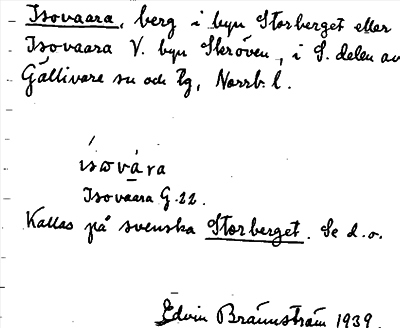 Isovaara, berg i byn Storberget eller
Isovaara V. byn Skröven, i S. delen av
Gällivare sn och lg, Norrb. l.
ísovára
Isovaara G. 22.
Kallas på svenska Storberget. Se d. o.
Edvin Brännström 1939.